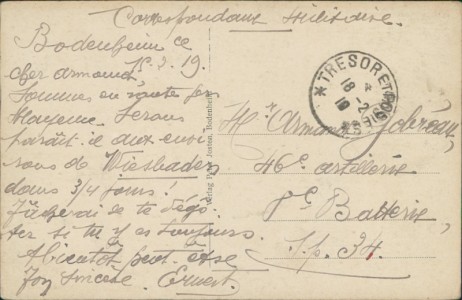 Correspondance Militaire.
Bodenheim ce
15.2.19.
cher armand.
Sommes en route pour
Mayence. Serons
paraît il aux envi
rons de Wiesbaden
dans 3/4 jours!
Tâcherai de te dégo
ter si tu y es toujours.
A bientôt peut-être
Ton sincère Ernest.
Bodenheim
*TRESOR ET POSTES*
18-2
19
Mr Armand
46e artillerie
Batterie,
S.p. 34.